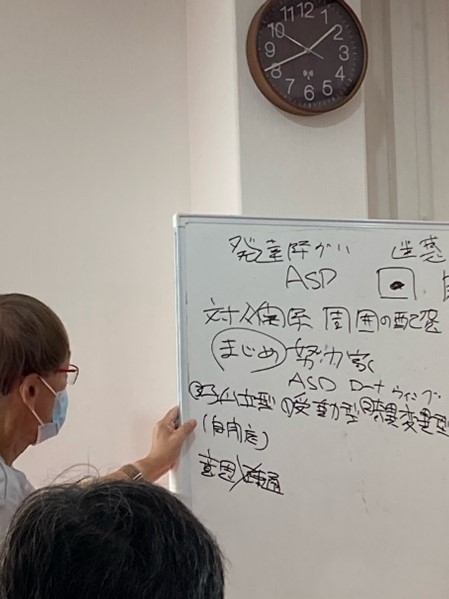 11 12 1
10 2
9 3
8 4
7 6 5
発達障がい 迷惑
ASD
対人関係 周囲の配慮
まじめ 努力家
ASD ローナ ウィング
③孤立型 ①受動型
(自閉症)
意思 疎通